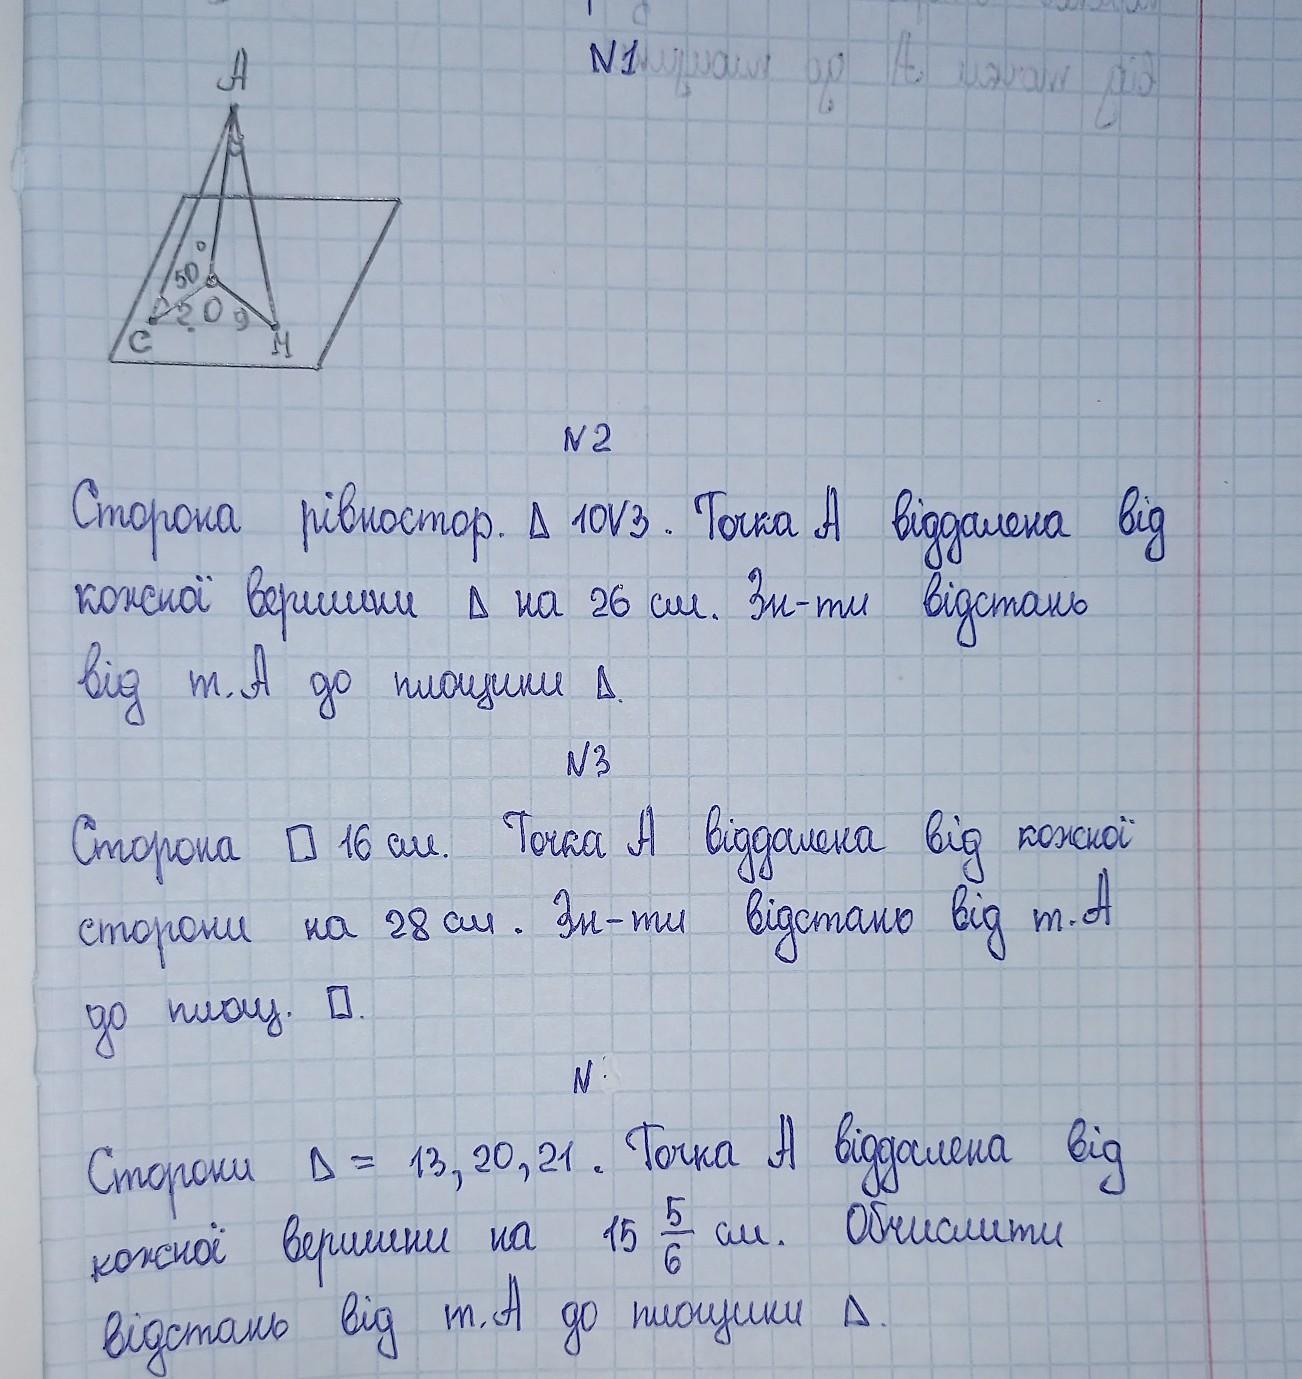 N1
A
50°
C
2
O
9
M
N2
Сторона рівностор. Δ 10√3. Точка А віддалена від
кожної вершини Δ на 26 см. Зн-ти відстань
від т. А до площини Δ.
N3
Сторона □ 16 см. Точка А віддалена від кожної
сторони на 28 см. Зн-ти відстань від т. А
до площ. □.
N
Сторони Δ = 13, 20, 21. Точка А віддалена від
кожної вершини на 15 5/6 см. Обчислити
відстань від т. А до площини Δ.